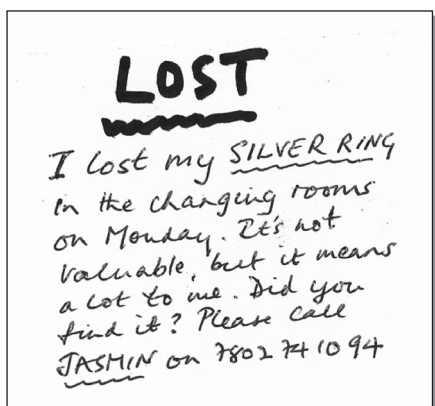 LOST
I lost my SILVER RING
in the changing rooms
on Monday. It's not
valuable, but it means
a lot to me. Did you
find it? Please call
JASMIN on 7802 741094